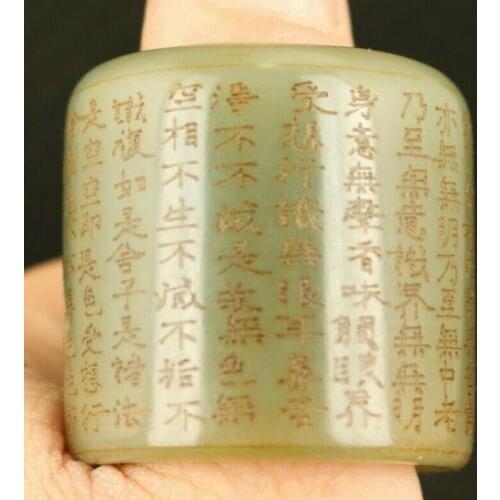 是空空即是色受想行
識復如是舍子是諸法
空相不生不滅不垢不
淨不不減是故無色無
受想行識無眼耳鼻舌
身意無聲香味觸眼界
乃至無意識界無無明
亦無無明乃至無中老